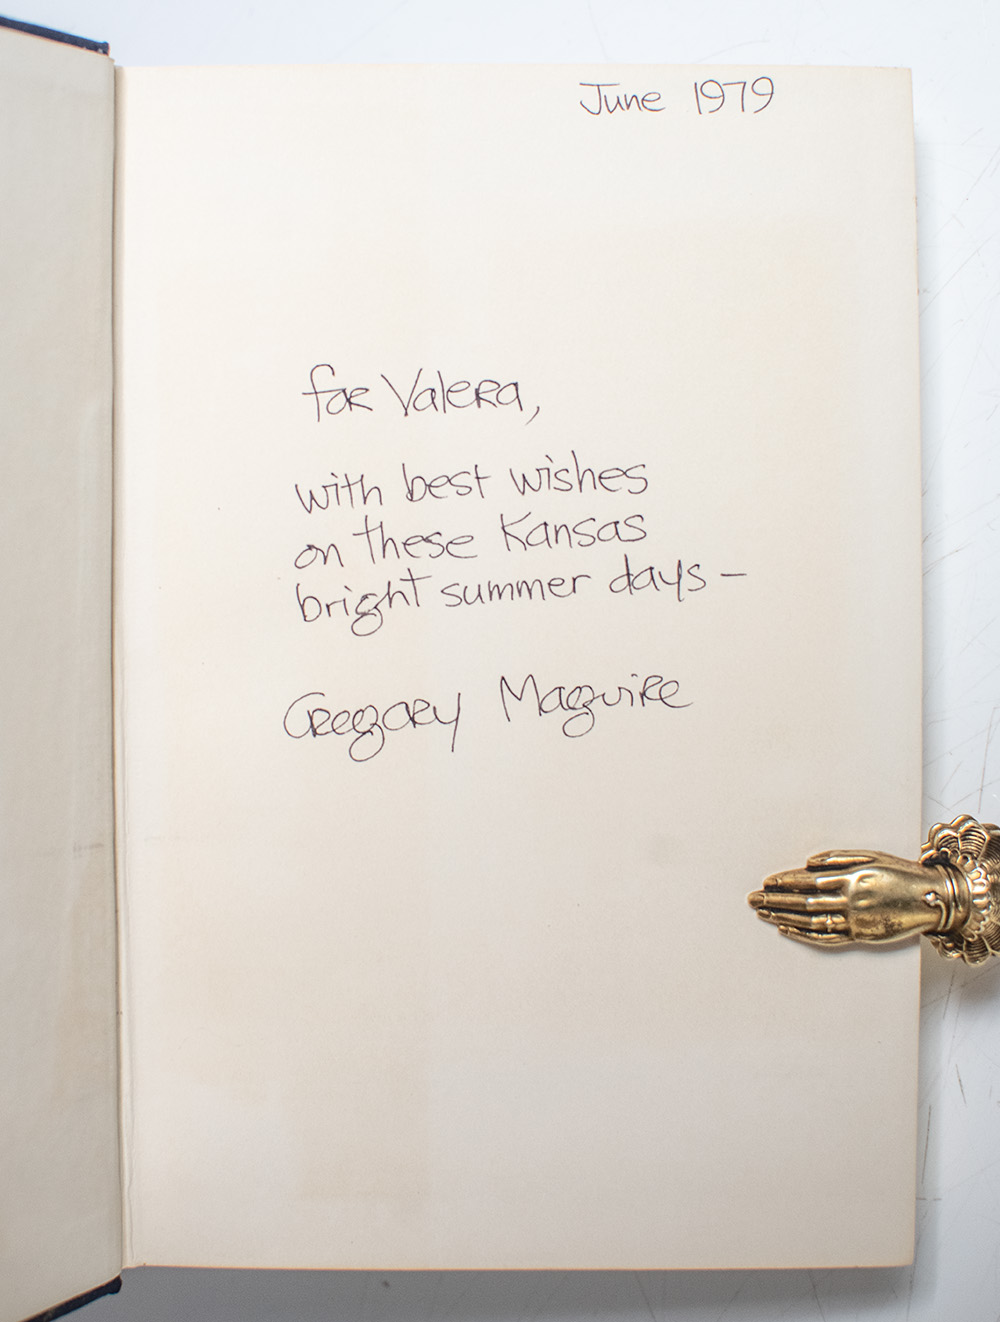 June 1979
for Valera,
with best wishes
on these Kansas
bright summer days –
Gregory Maguire